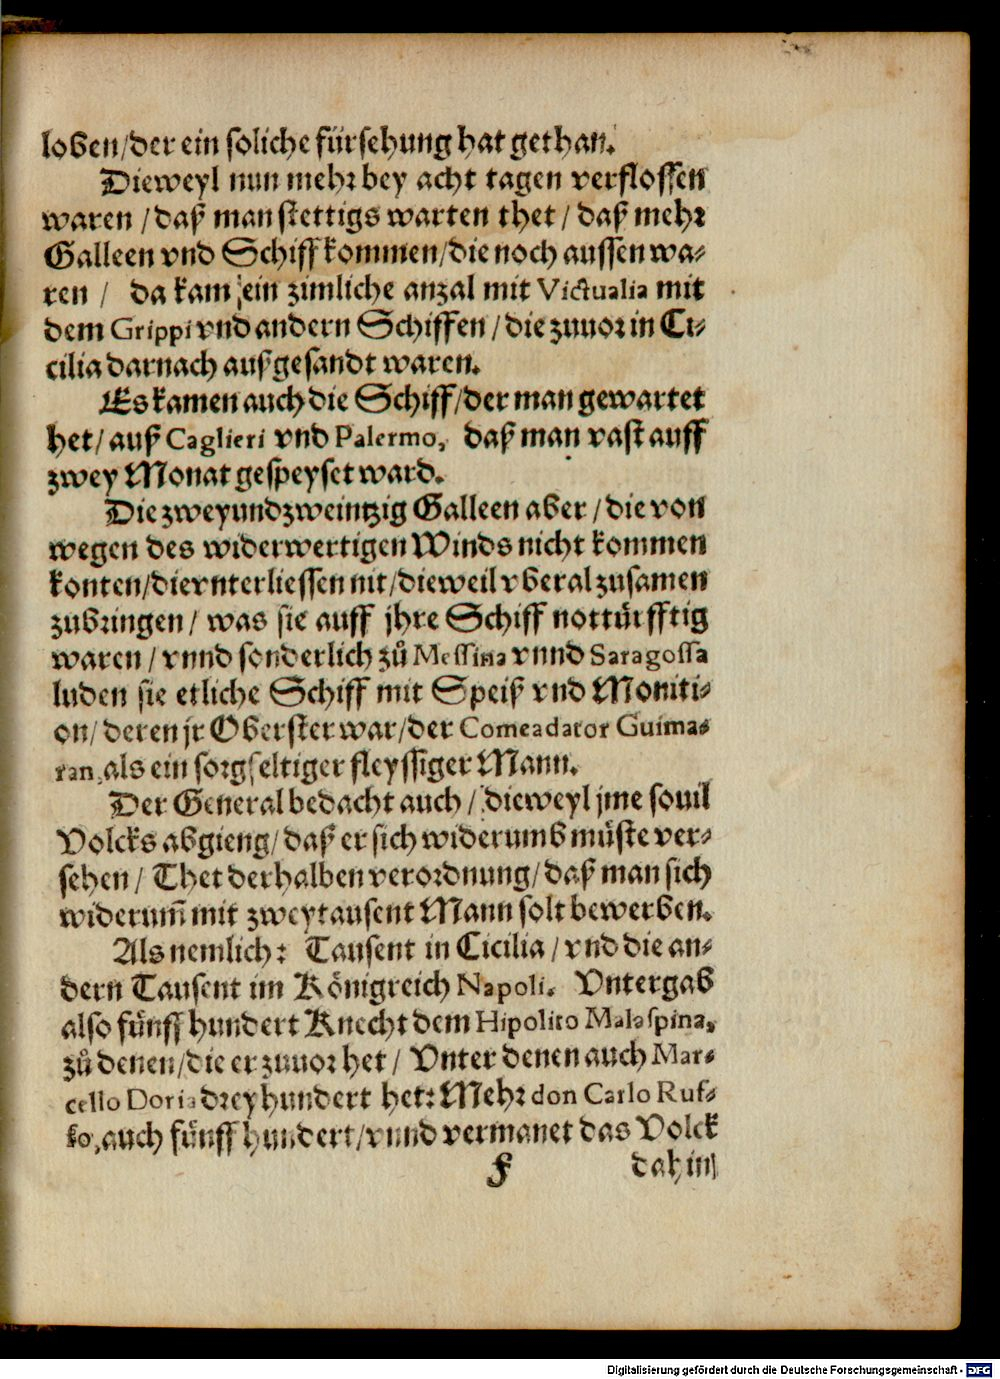 loben/der ein soliche fürsehung hat gethan.
Dieweyl nun mehr bey acht tagen verflossen
waren / daß man stettigs warten thet / daß mehr
Galleen vnd Schiff kommen/die noch aussen wa⸗
ren / da kam ein zimliche anzal mit Victualia mit
dem Grippi vnd andern Schiffen / die zuuor in Ci⸗
cilia darnach außgesandt waren.
Es kamen auch die Schiff/der man gewartet
het/ auß Caglieri vnd Palermo, daß man vast auff
zwey Monat gespeyset ward.
Die zweyundzweintzig Galleen aber / die von
wegen des widerwertigen Winds nicht kommen
konten/die vnterliessen nit/dieweil vberal zusamen
zubringen / was sie auff jhre Schiff nottürfftig
waren / vnnd sonderlich zů Messina vnnd Saragossa
luden sie etliche Schiff mit Speiß vnd Moniti⸗
on/ deren jr Oberster war/der Comeadator Guima⸗
ran, als ein sorgfeltiger fleyssiger Mann.
Der General bedacht auch / dieweyl jme souil
Volcks abgieng/daß er sich widerumb müste ver⸗
sehen / Thet derhalben verordnung/daß man sich
widerum̃ mit zweytausent Mann solt bewerben.
Als nemlich: Tausent in Cicilia / vnd die an⸗
dern Tausent im Königreich Napoli. Vntergab
also fünff hundert Knecht dem Hipolito Malaspina,
zů denen/die er zuuor het / Vnter denen auch Mar⸗
cello Doria dreyhundert het: Mehr don Carlo Ruf⸗
ko, auch fünff hundert/vnnd vermanet das Volck
F dahin
Digitalisierung gefördert durch die Deutsche Forschungsgemeinschaft - DFG